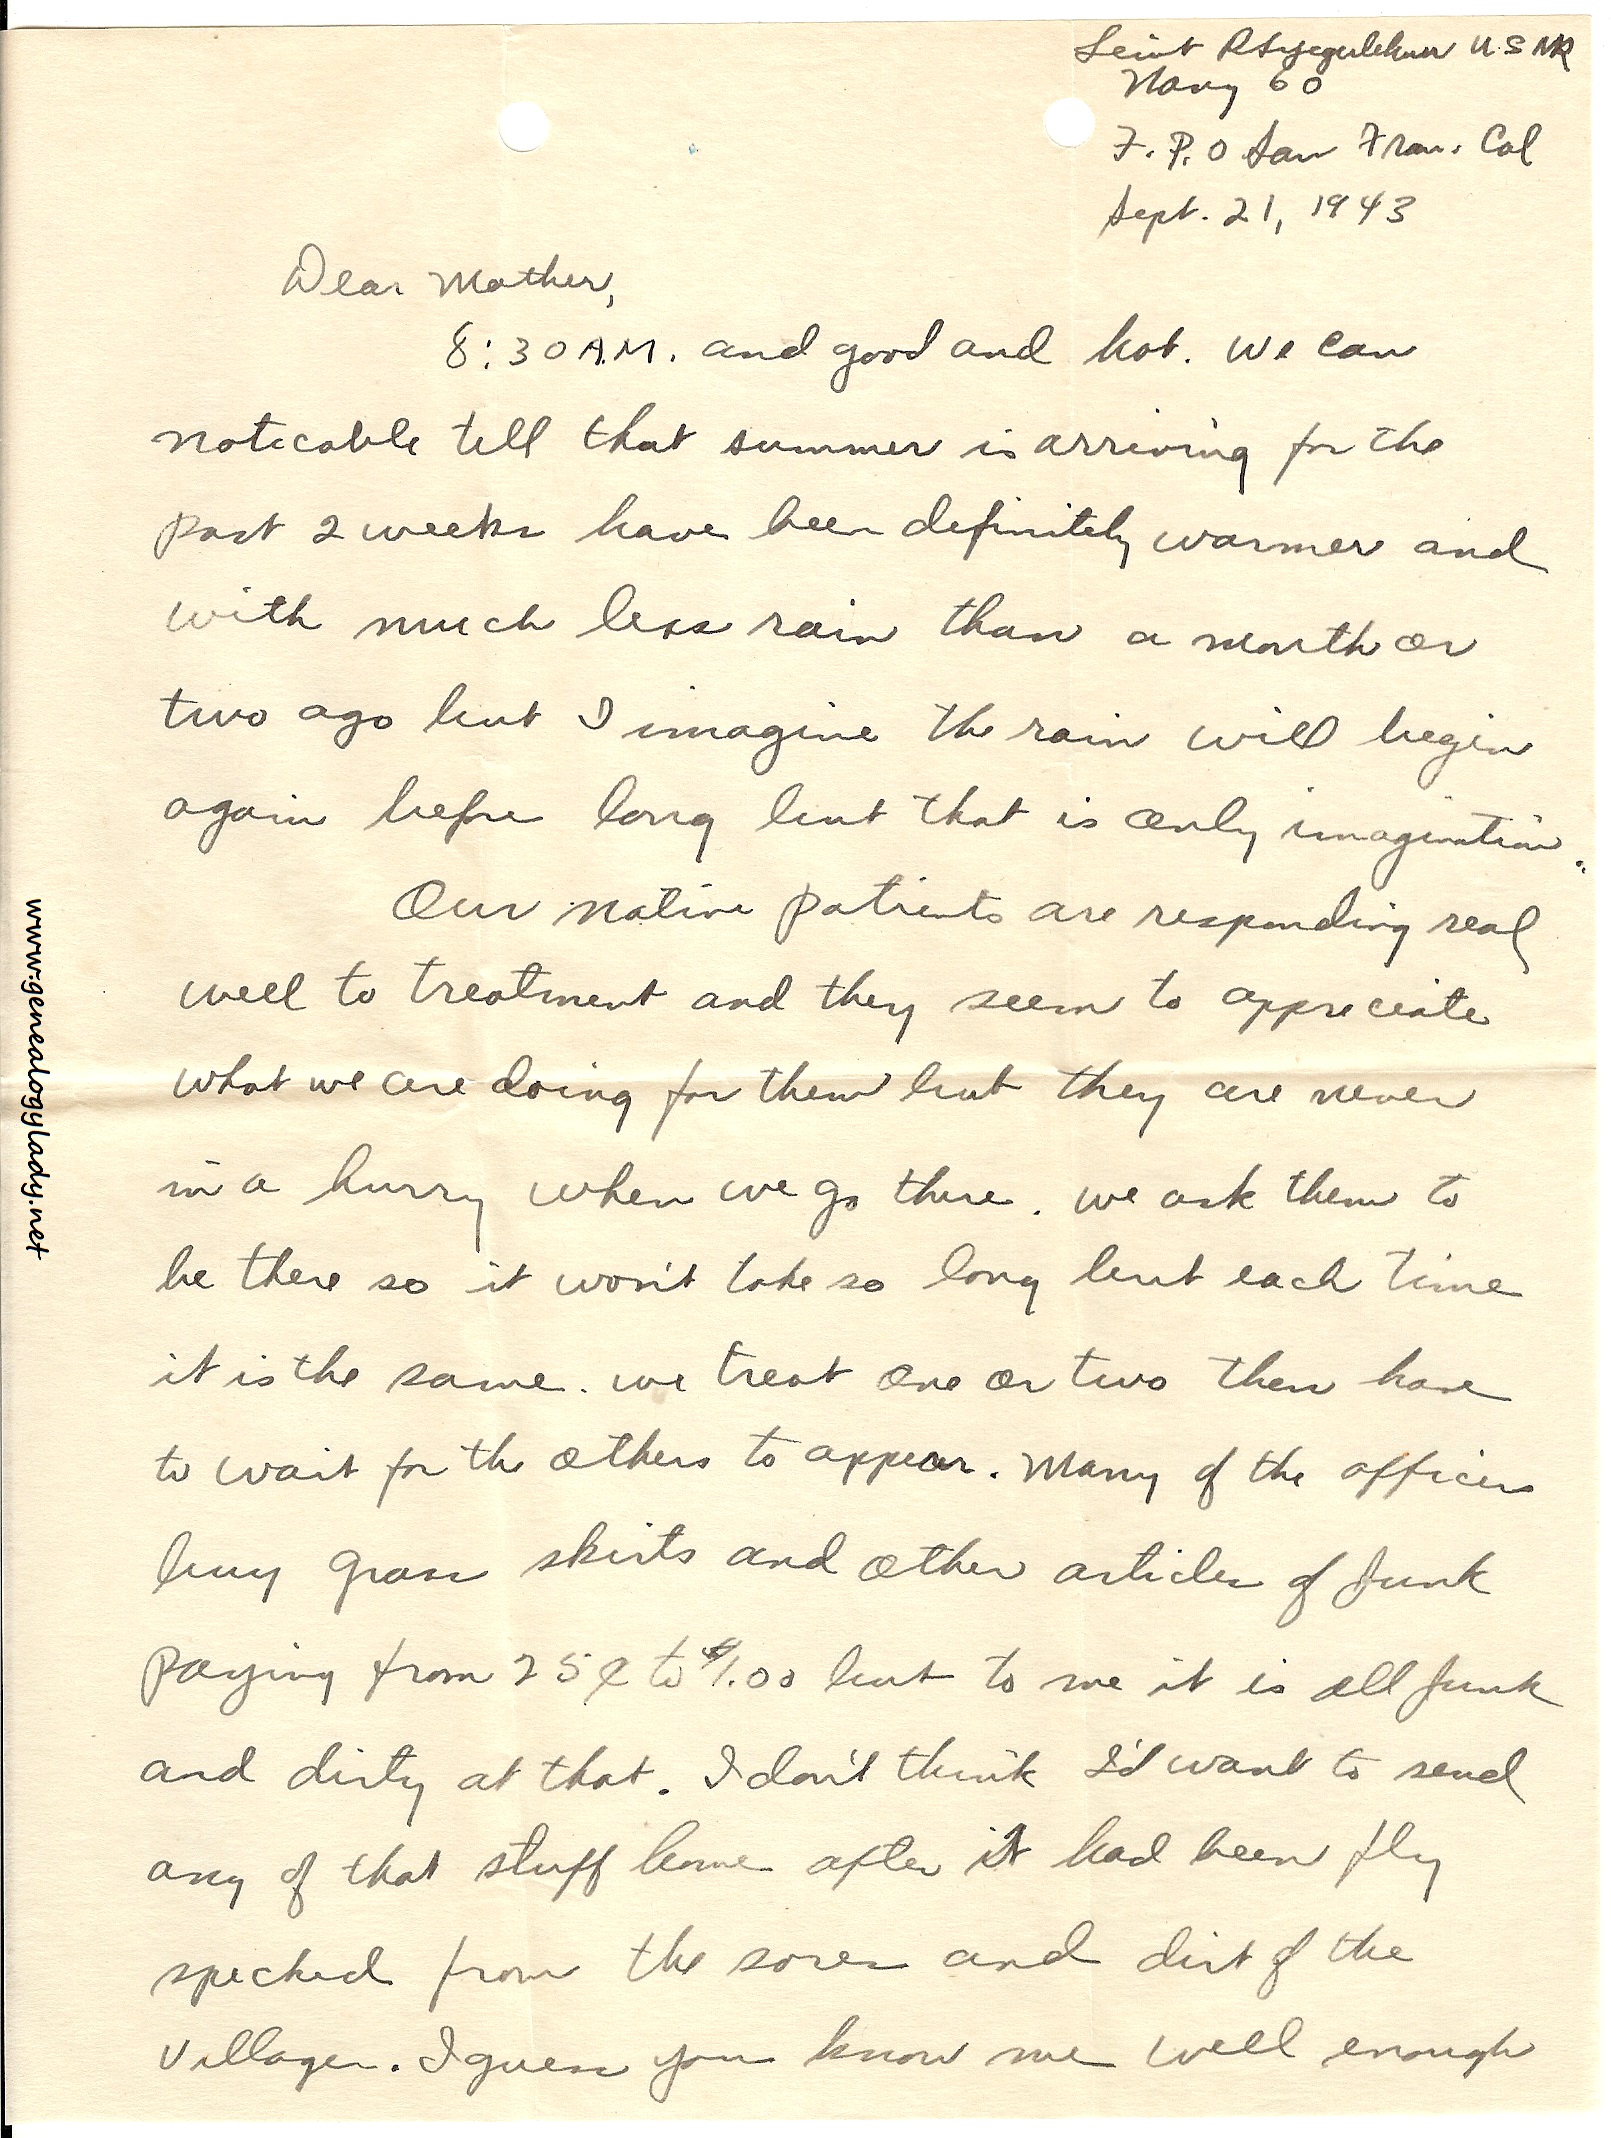 Leiut R S Yegerlehner U.S NR
Navy 60
F. P. O San Fran. Cal
Sept. 21, 1943
Dear Mother,
8:30 A.M. and good and hot. We can
noticable tell that summer is arriving for the
past 2 weeks have been definitely warmer and
with much less rain than a month or
two ago but I imagine the rain will begin
again before long but that is only imagination.
Our native patients are responding real
well to treatment and they seem to appreciate
what we are doing for them but they are never
in a hurry when we go there. We ask them to
be there so it won't take so long but each time
it is the same. We treat one or two then have
to wait for the others to appear. Many of the officers
buy grass skirts and other articles of junk
paying from 25¢ to $1.00 but to me it is all junk
and dirty at that. I don't think I'd want to send
any of that stuff home after it had been fly
specked from the sores and dirt of the
villages. I guess you know me well enough
www.genealogylady.net